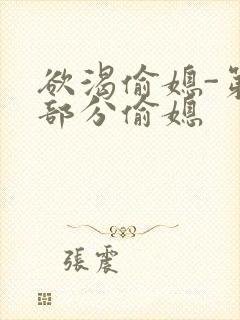 欲渴偷媳-第
部分偷媳
張震